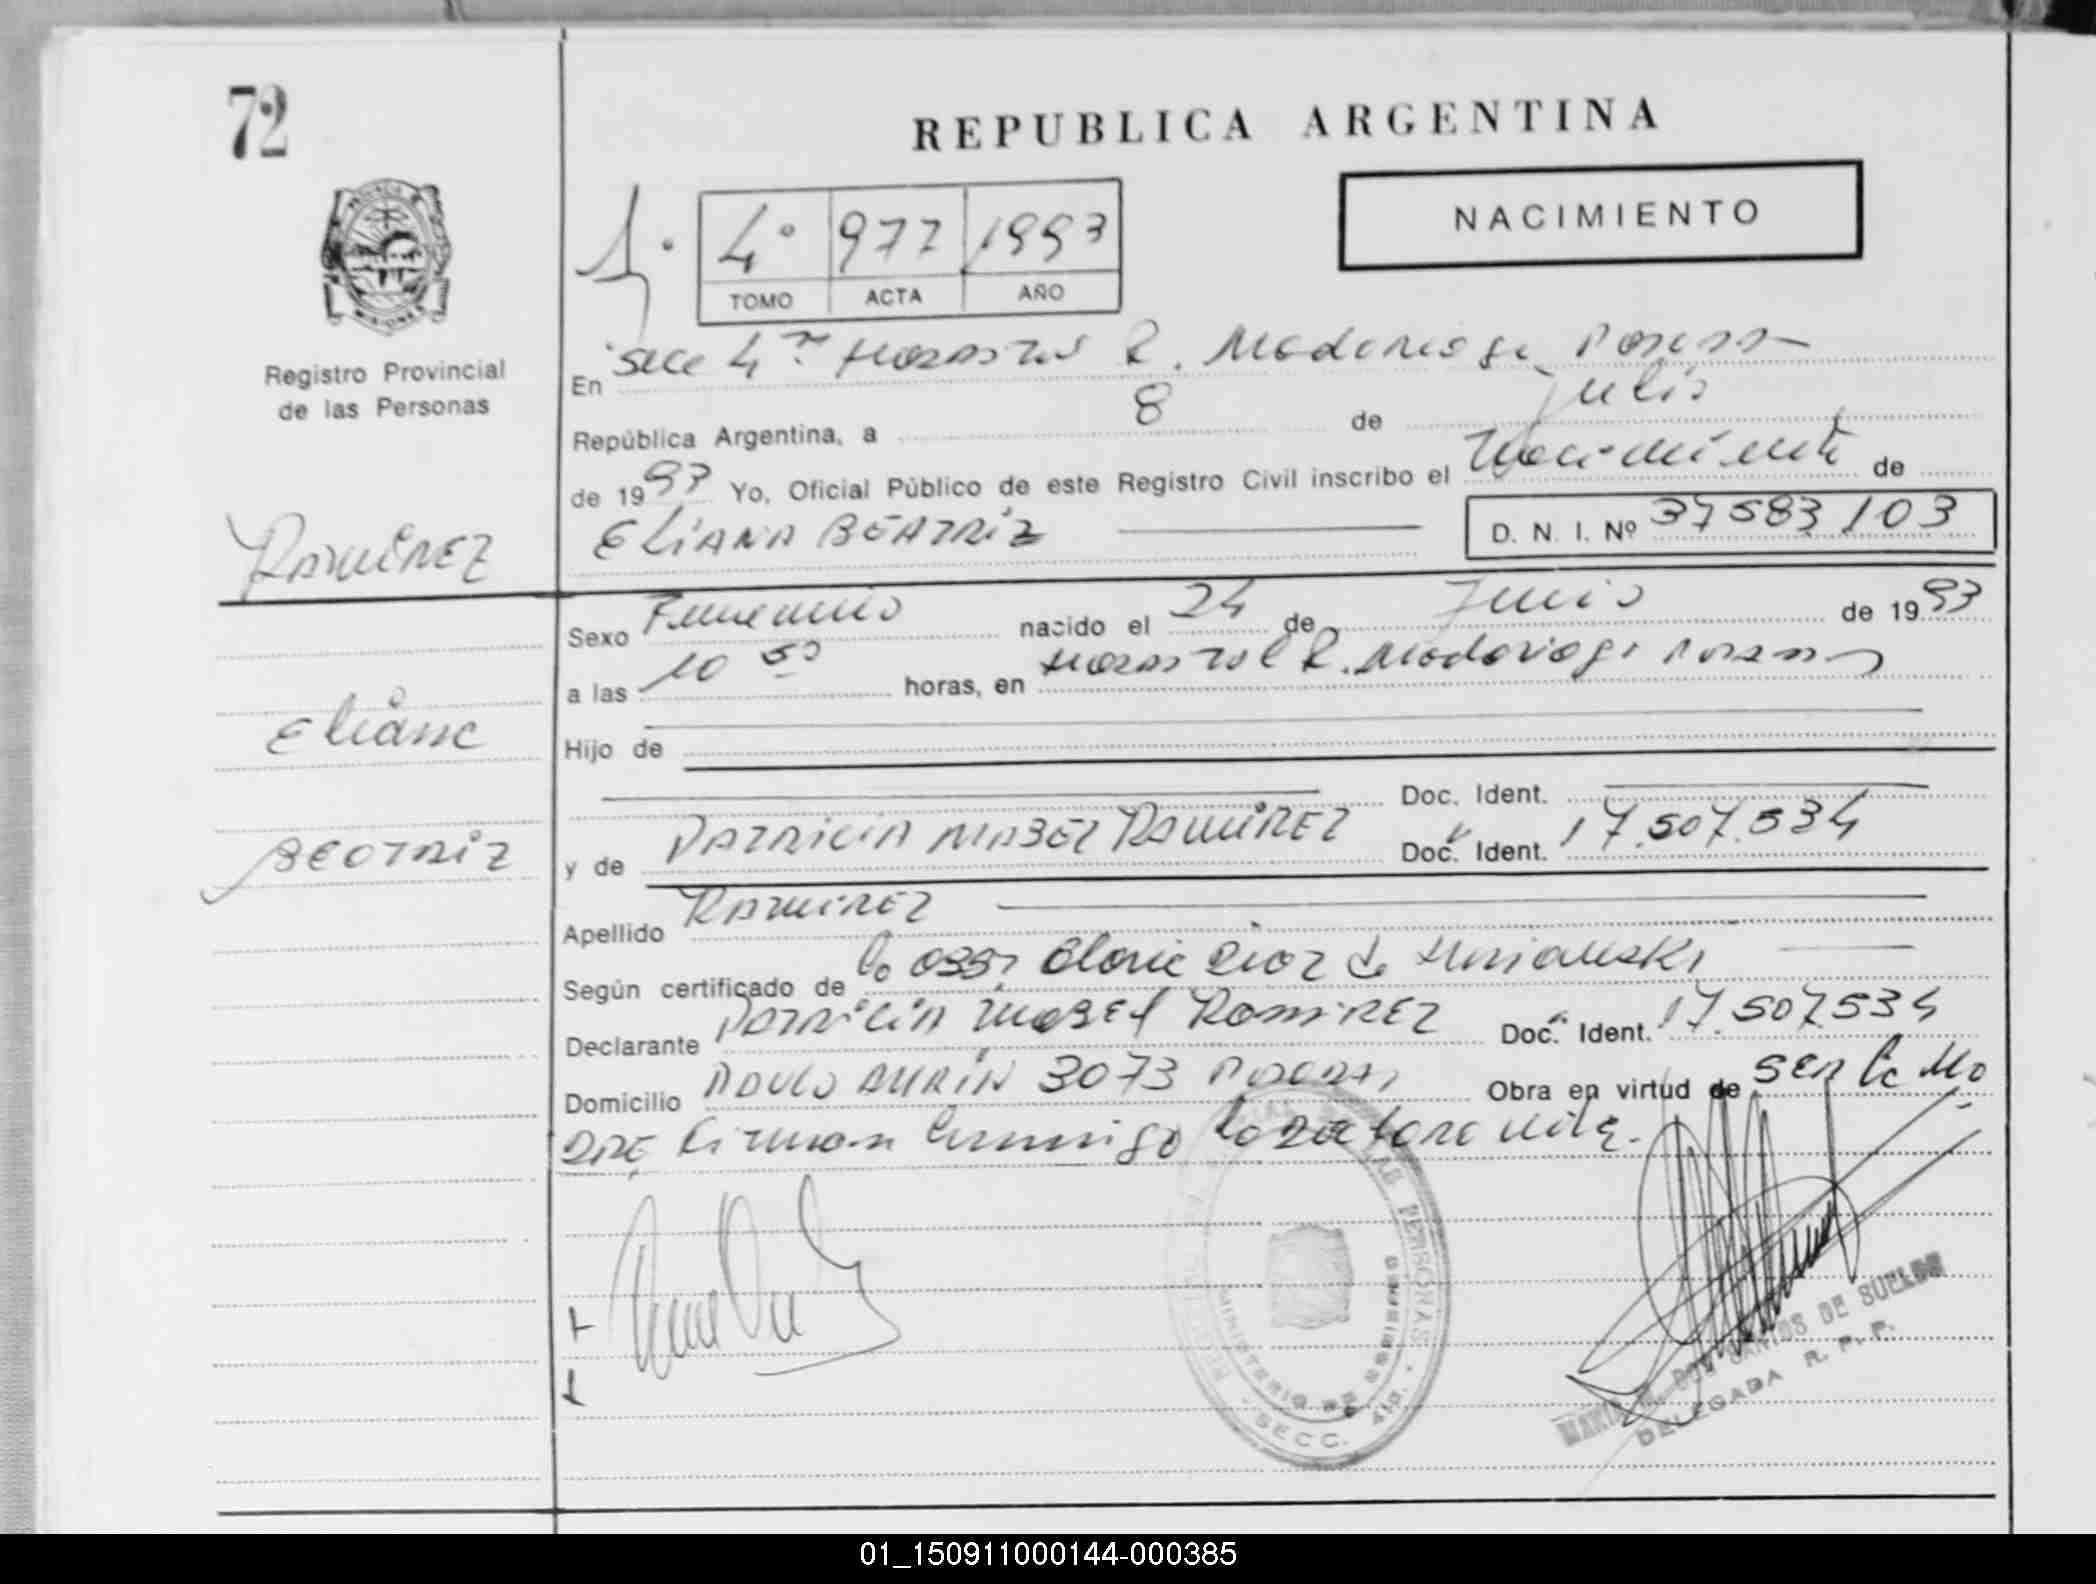 72
REPUBLICA ARGENTINA
NACIMIENTO
1.
4° 977 1993
TOMO ACTA AÑO
Registro Provincial
de las Personas
En Secc 4ta Hospital R. Madariaga Posadas
República Argentina, a 8 de Julio
de 1993 Yo, Oficial Público de este Registro Civil inscribo el Nacimiento de
ELIANA BEATRIZ
D. N. I. Nº 37583103
RAMIREZ
Eliana
BEATRIZ
Sexo Femenino nacido el 24 de Junio de 1993
a las 10 50 horas, en Hospital R. Madariaga Posadas
Hijo de
Doc. Ident.
y de PATRICIA MABEL RAMIREZ Doc. Ident. 17.507.534
Apellido RAMIREZ
Según certificado de la Obst Diaz de
Declarante PATRICIA MABEL RAMIREZ Doc. Ident. 17.507534
Domicilio 3073 Posadas Obra en virtud de ser la Ma
dre Firman conmigo la
PERSONAS
MINISTERIO DE GOBIERNO
SECC. 4ta.
DOS SANTOS DE
DELEGADA R. P. P.
01_150911000144-000385